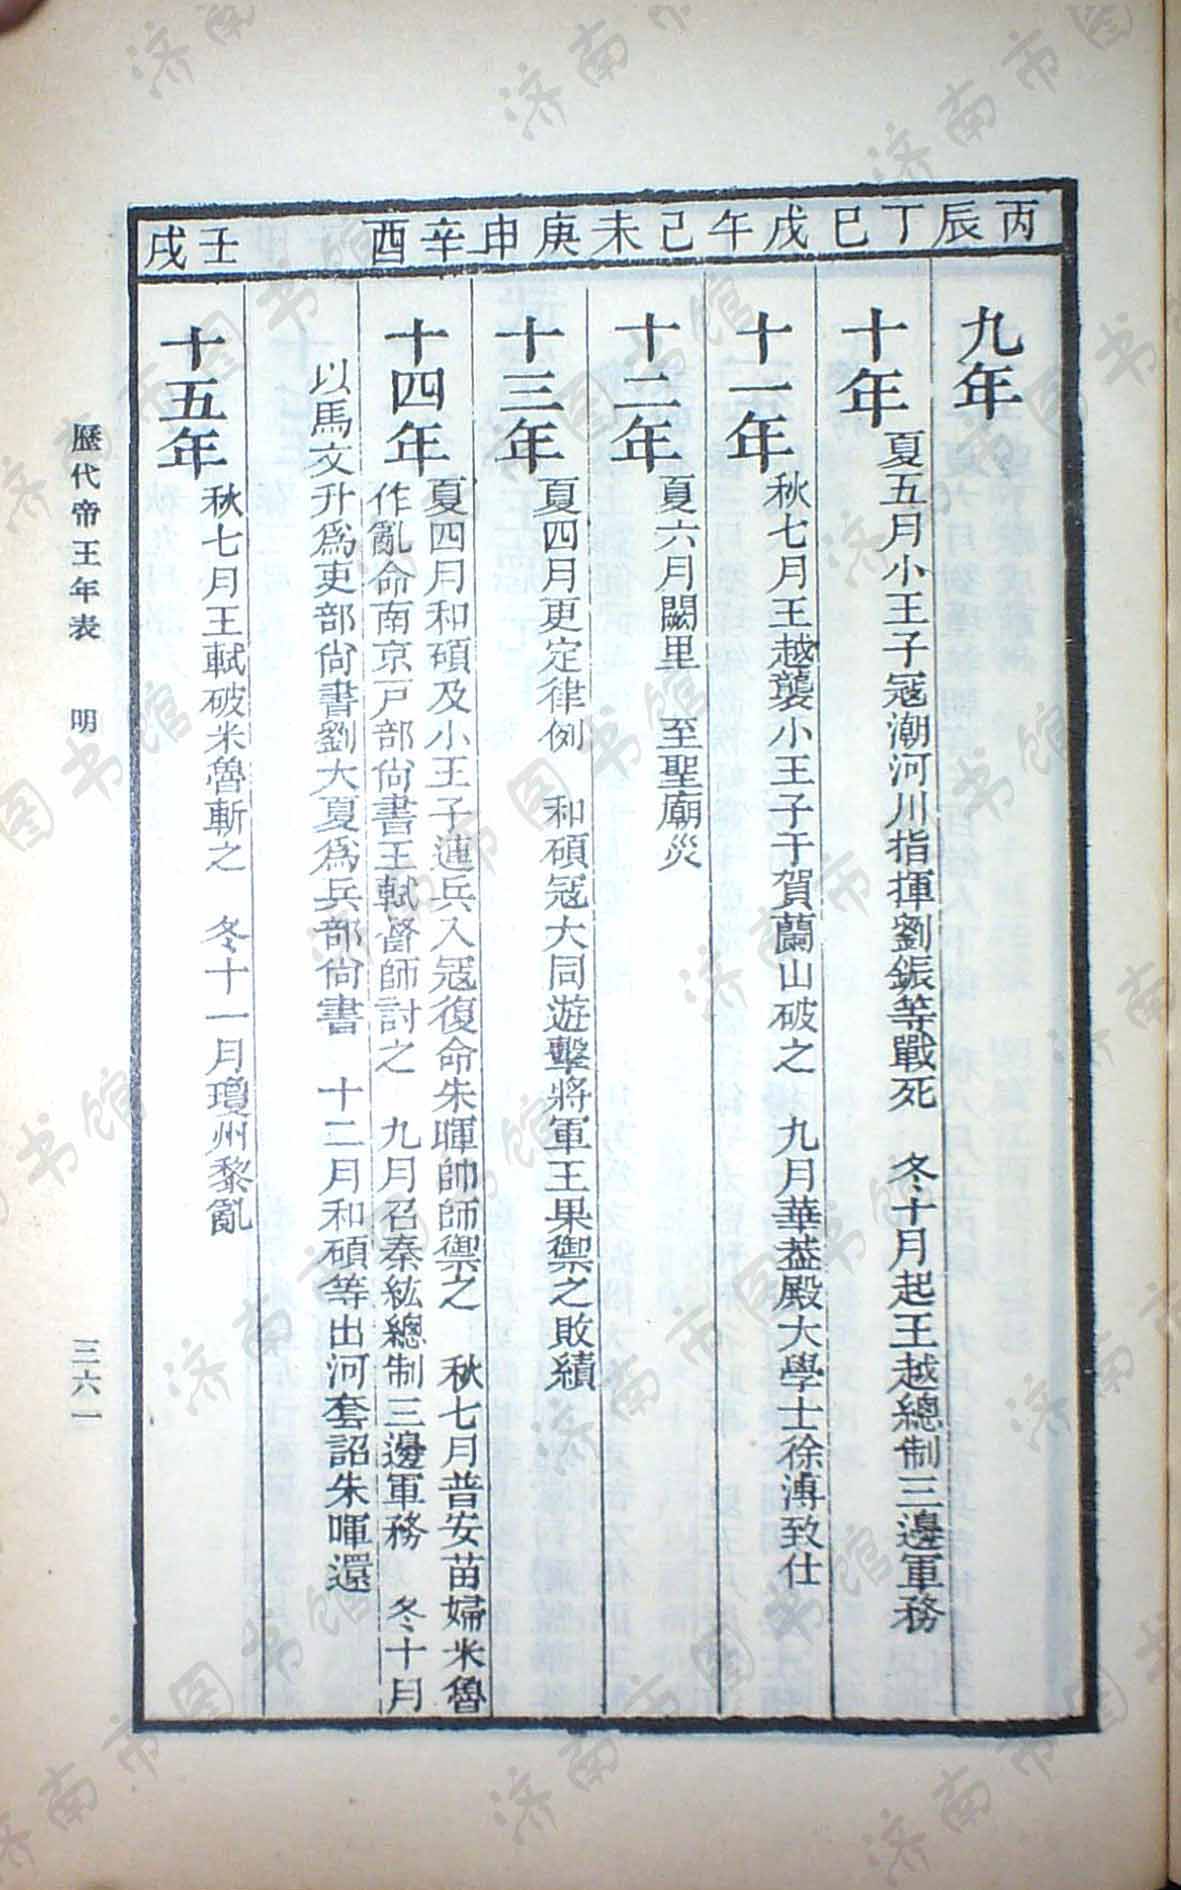 丙辰丁巳戊午己未庚申辛酉 壬戌
九年
十年 夏五月小王子寇潮河川指揮劉鋠等戰死 冬十月起王越總制三邊軍務
十一年 秋七月王越襲小王子于賀蘭山破之 九月華葢殿大學士徐溥致仕
十二年 夏六月闕里 至聖廟災
十三年 夏四月更定律例 和碩寇大同遊擊將軍王果禦之敗績
十四年 夏四月和碩及小王子連兵入寇復命朱暉帥師禦之 秋七月普安苗婦米魯
作亂命南京戶部尙書王軾督師討之 九月召秦紘總制三邊軍務 冬十月
以馬文升爲吏部尙書劉大夏爲兵部尙書 十二月和碩等出河套詔朱暉還
十五年 秋七月王軾破米魯斬之 冬十一月瓊州黎亂
歷代帝王年表 明 三六一
济南市图书馆